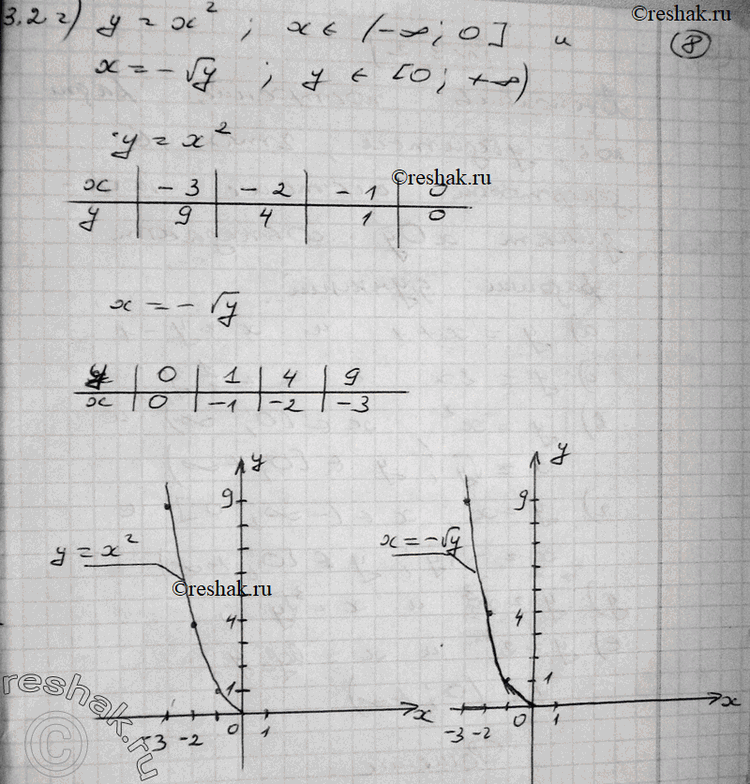 ©reshak.ru
3.2 г) y = x² ; x ∈ (-∞; 0] и
8
x = -√y ; y ∈ [0; +∞)
y = x²
x | -3 | -2 | -1 | 0
©reshak.ru
y | 9 | 4 | 1 | 0
x = -√y
y | 0 | 1 | 4 | 9
x | 0 | -1 | -2 | -3
y
y
9
9
y = x²
x = -√y
©reshak.ru
4
4
1
1
x
x
-3 -2 0 1
-3 -2 0 1
reshak.ru
©